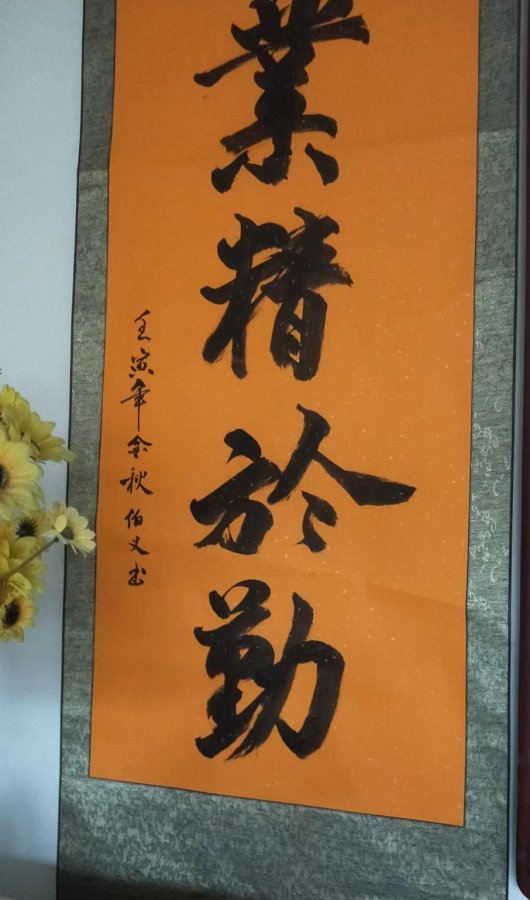 業精於勤
壬寅年金秋伯义书